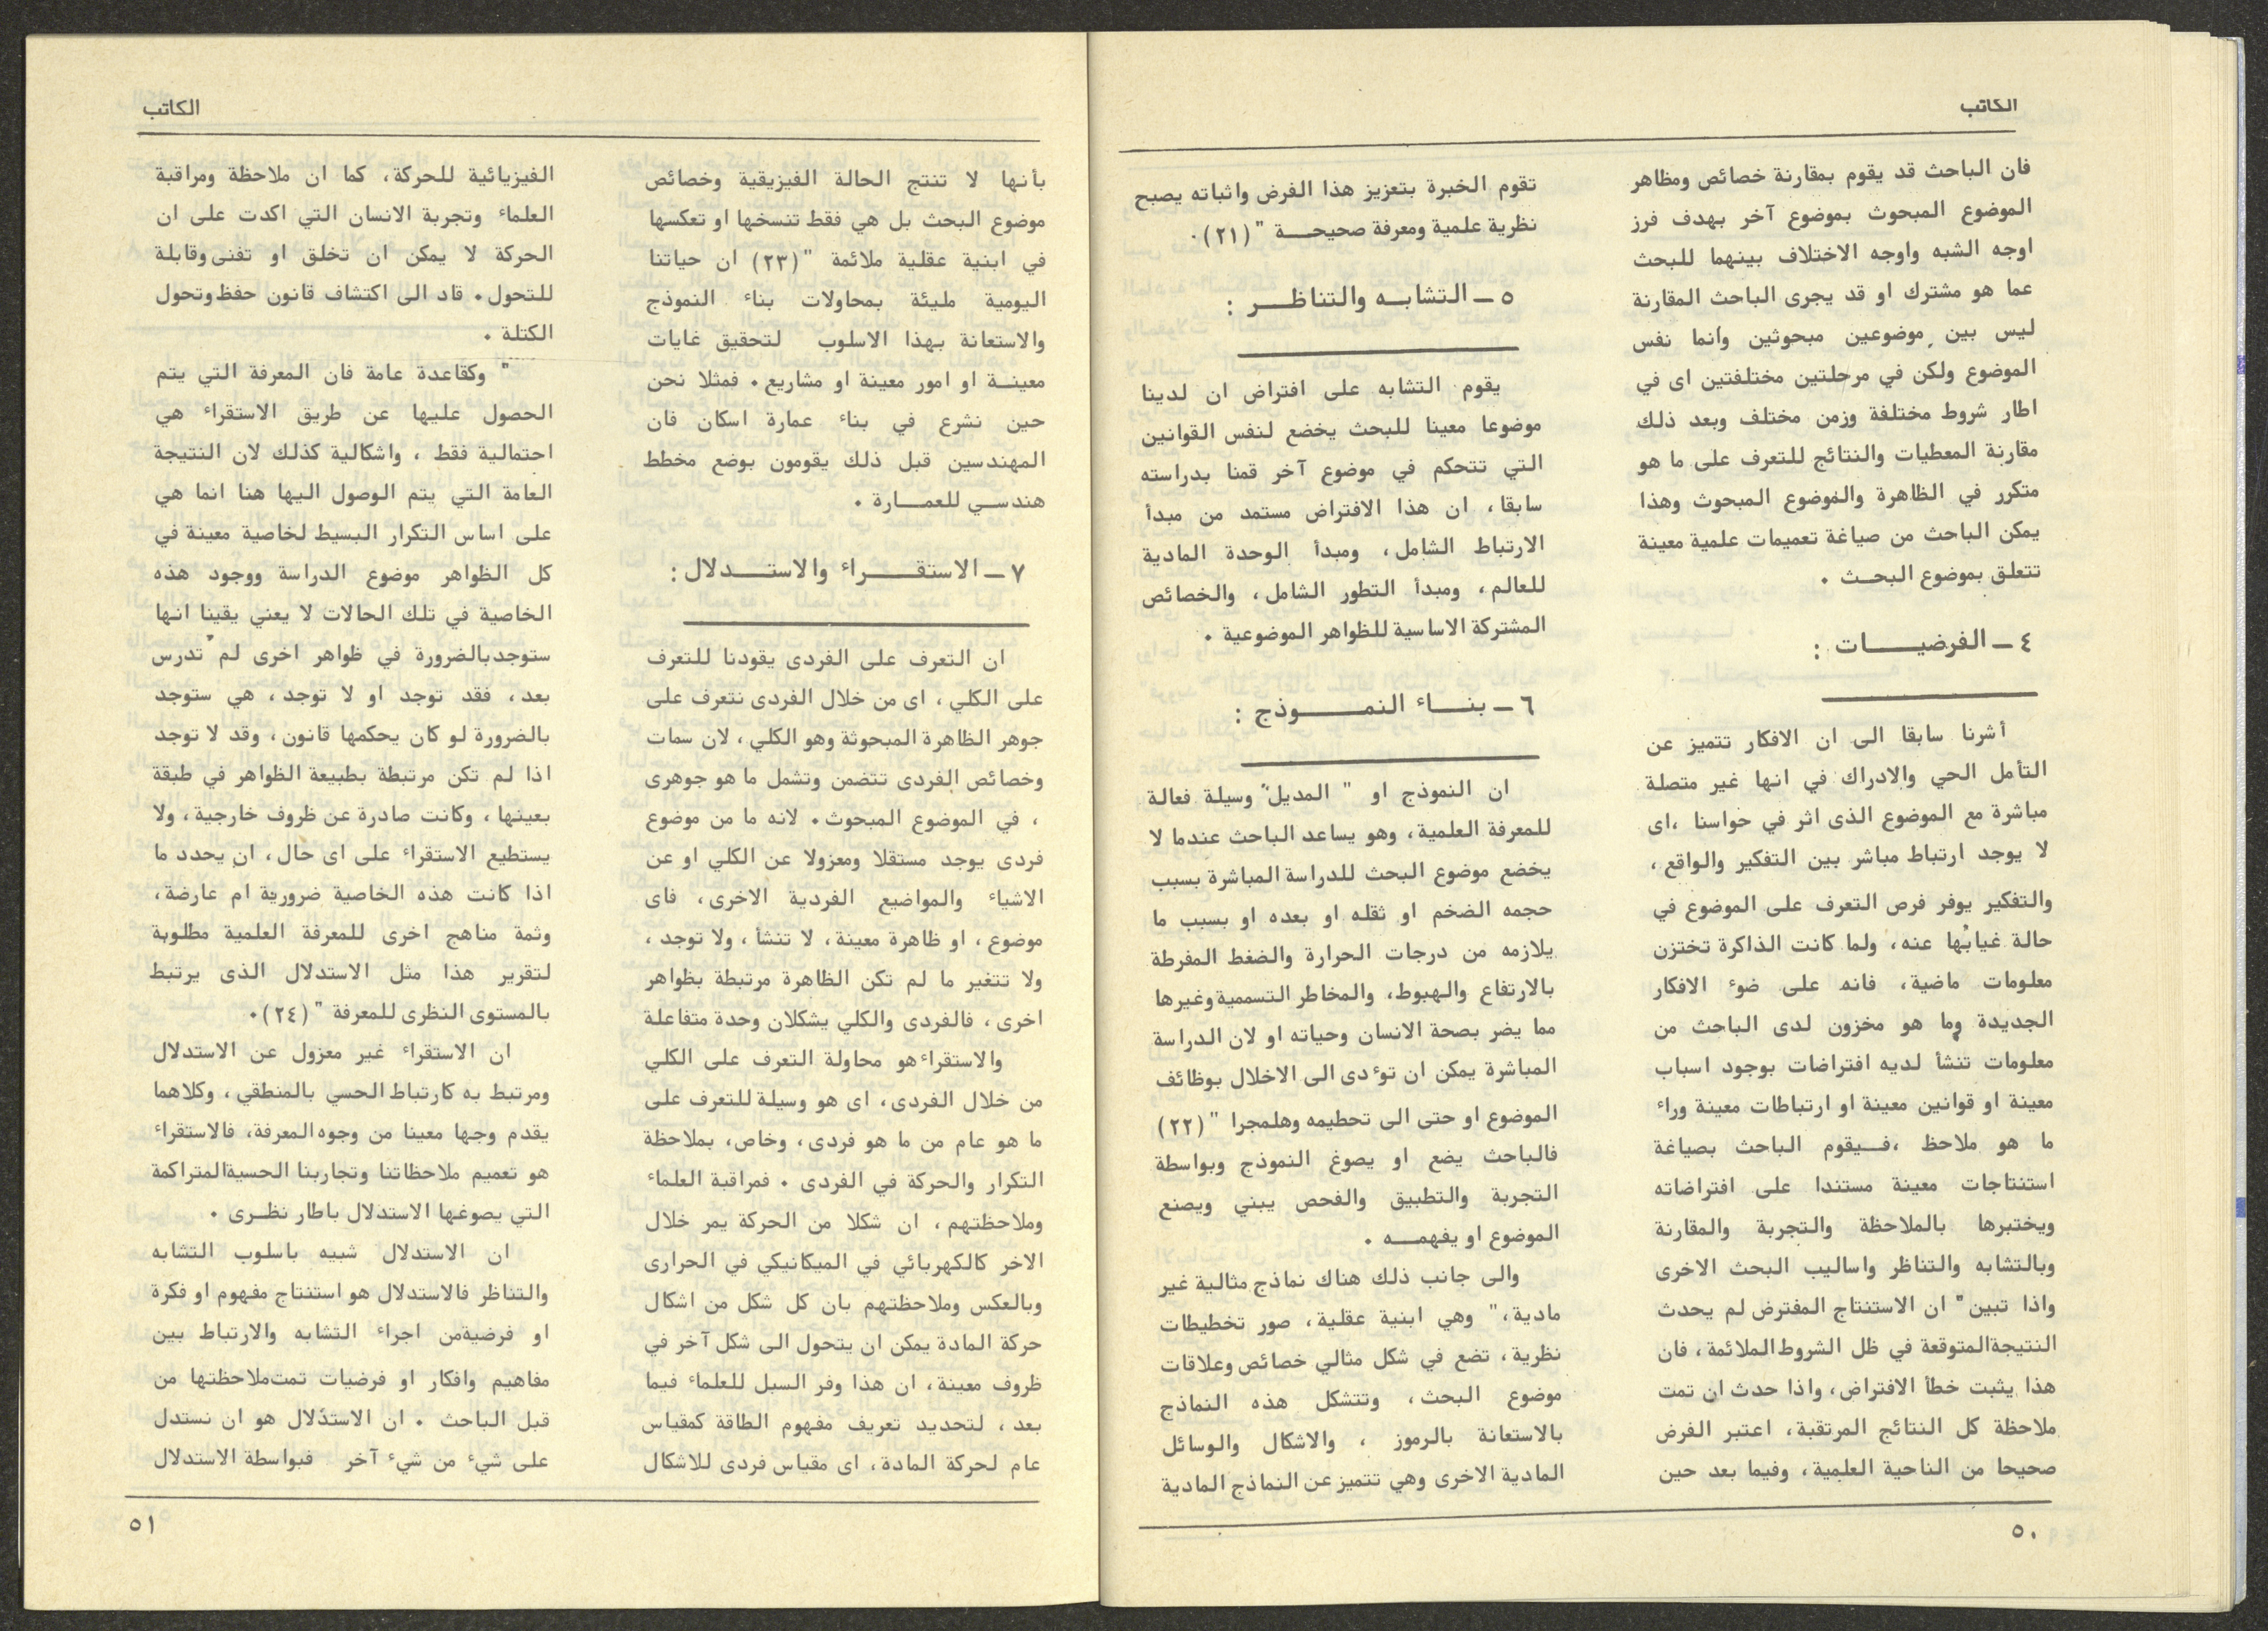 الكاتب
فان الباحث قد يقوم بمقارنة خصائص ومظاهر
الموضوع المبحوث بموضوع آخر بهدف فرز
اوجه الشبه واوجه الاختلاف بينهما للبحث
عما هو مشترك او قد يجرى الباحث المقارنة
ليس بين موضوعين مبحوثين وانما نفس
الموضوع ولكن في مرحلتين مختلفتين اى في
اطار شروط مختلفة وزمن مختلف وبعد ذلك
مقارنة المعطيات والنتائج للتعرف على ما هو
متكرر في الظاهرة والموضوع المبحوث وهذا
يمكن الباحث من صياغة تعميمات علمية معينة
تتعلق بموضوع البحث .
٤ ـ الفرضيات :
أشرنا سابقا الى ان الافكار تتميز عن
التأمل الحي والادراك في انها غير متصلة
مباشرة مع الموضوع الذى اثر في حواسنا ،اى
لا يوجد ارتباط مباشر بين التفكير والواقع ،
والتفكير يوفر فرص التعرف على الموضوع في
حالة غيابها عنه، ولما كانت الذاكرة تختزن
معلومات ماضية، فانه على ضوء الافكار
الجديدة وما هو مخزون لدى الباحث من
معلومات تنشأ لديه افتراضات بوجود اسباب
معينة او قوانين معينة او ارتباطات معينة وراء
ما هو ملاحظ ،فيقوم الباحث بصياغة
استنتاجات معينة مستندا على افتراضاته
ويختبرها بالملاحظة والتجربة والمقارنة
وبالتشابه والتناظر واساليب البحث الاخرى
واذا تبين" ان الاستنتاج المفترض لم يحدث
النتيجةالمتوقعة في ظل الشروط الملائمة، فان
هذا يثبت خطأ الافتراض، واذا حدث ان تمت
ملاحظة كل النتائج المرتقبة، اعتبر الفرض
صحيحا من الناحية العلمية، وفيما بعد حين
٥٠
تقوم الخبرة بتعزيز هذا الفرض واثباته يصبح
نظرية علمية ومعرفة صحيحة "(٢١).
٥ ـ التشابه والتناظر :
يقوم التشابه على افتراض ان لدينا
موضوعا معينا للبحث يخضع لنفس القوانين
التي تتحكم في موضوع آخر قمنا بدراسته
سابقا، ان هذا الافتراض مستمد من مبدأ
الارتباط الشامل، ومبدأ الوحدة المادية
للعالم، ومبدأ التطور الشامل، والخصائص
المشتركة الاساسية للظواهر الموضوعية .
٦ ـ بناء النموذج :
ان النموذج او " المديل" وسيلة فعالة
للمعرفة العلمية، وهو يساعد الباحث عندما لا
يخضع موضوع البحث للدراسة المباشرة بسبب
حجمه الضخم او ثقله او بعده او بسبب ما
يلازمه من درجات الحرارة والضغط المفرطة
بالارتفاع والهبوط، والمخاطر التسممية وغيرها
مما يضر بصحة الانسان وحياته او لان الدراسة
المباشرة يمكن ان توءدى الى الاخلال بوظائف
الموضوع او حتى الى تحطيمه وهلمجرا "(٢٢)
فالباحث يضع او يصوغ النموذج وبواسطة
التجربة والتطبيق والفحص يبني ويصنع
الموضوع او يفهمه .
والى جانب ذلك هناك نماذج مثالية غير
مادية،" وهي ابنية عقلية، صور تخطيطات
نظرية، تضع في شكل مثالي خصائص وعلاقات
موضوع البحث، وتتشكل هذه النماذج
بالاستعانة بالرموز ، والاشكال والوسائل
المادية الاخرى وهي تتميز عن النماذج المادية
الكاتب
بأنها لا تنتج الحالة الفيزيقية وخصائص
موضوع البحث بل هي فقط تنسخها او تعكسها
في ابنية عقلية ملائمة "(٢٣) ان حياتنا
اليومية مليئة بمحاولات بناء النموذج
والاستعانة بهذا الاسلوب لتحقيق غايات
معينة او امور معينة او مشاريع. فمثلا نحن
حين نشرع في بناء عمارة اسكان فان
المهندسين قبل ذلك يقومون بوضع مخطط
هندسي للعمارة .
٧ ـ الاستقراء والاستدلال :
ان التعرف على الفردى يقودنا للتعرف
على الكلي ، اى من خلال الفردى نتعرف على
جوهر الظاهرة المبحوثة وهو الكلي، لان سمات
وخصائص الفردى تتضمن وتشمل ما هو جوهرى
، في الموضوع المبحوث. لانه ما من موضوع
فردى يوجد مستقلا ومعزولا عن الكلي او عن
الاشياء والمواضيع الفردية الاخرى، فاى
موضوع، او ظاهرة معينة، لا تنشأ ، ولا توجد،
ولا تتغير ما لم تكن الظاهرة مرتبطة بظواهر
اخرى، فالفردى والكلي يشكلان وحدة متفاعلة
والاستقراء هو محاولة التعرف على الكلي
من خلال الفردى، اى هو وسيلة للتعرف على
ما هو عام من ما هو فردى، وخاص، بملاحظة
التكرار والحركة في الفردى . فمراقبة العلماء
وملاحظتهم، ان شكلا من الحركة يمر خلال
الاخر كالكهربائي في الميكانيكي في الحرارى
وبالعكس وملاحظتهم بان كل شكل من اشكال
حركة المادة يمكن ان يتحول الى شكل آخر في
ظروف معينة، ان هذا وفر السبل للعلماء فيما
بعد ، لتحديد تعريف مفهوم الطاقة كمقياس
عام لحركة المادة، اى مقياس فردى للاشكال
الفيزيائية للحركة، كما ان ملاحظة ومراقبة
العلماء وتجربة الانسان التي اكدت على ان
الحركة لا يمكن ان تخلق او تفنى وقابلة
للتحول. قاد الى اكتشاف قانون حفظ وتحول
الكتلة .
" وكقاعدة عامة فان المعرفة التي يتم
الحصول عليها عن طريق الاستقراء هي
احتمالية فقط ، واشكالية كذلك لان النتيجة
العامة التي يتم الوصول اليها هنا انما هي
على اساس التكرار البسيط لخاصية معينة في
كل الظواهر موضوع الدراسة ووجود هذه
الخاصية في تلك الحالات لا يعني يقينا انها
ستوجدبالضرورة في ظواهر اخرى لم تدرس
بعد، فقد توجد او لا توجد، هي ستوجد
بالضرورة لو كان يحكمها قانون، وقد لا توجد
اذا لم تكن مرتبطة بطبيعة الظواهر في طبقة
بعينها، وكانت صادرة عن ظروف خارجية، ولا
يستطيع الاستقراء على اى حال، ان يحدد ما
اذا كانت هذه الخاصية ضرورية ام عارضة،
وثمة مناهج اخرى للمعرفة العلمية مطلوبة
لتقرير هذا مثل الاستدلال الذى يرتبط
بالمستوى النظرى للمعرفة "(٢٤).
ان الاستقراء غير معزول عن الاستدلال
ومرتبط به كارتباط الحسي بالمنطقي، وكلاهما
يقدم وجها معينا من وجوه المعرفة، فالاستقراء
هو تعميم ملاحظاتنا وتجاربنا الحسيةالمتراكمة
التي يصوغها الاستدلال باطار نظرى .
ان الاستدلال شبيه باسلوب التشابه
والتناظر فالاستدلال هو استنتاج مفهوم او فكرة
او فرضيةمن اجراء التشابه والارتباط بين
مفاهيم وافكار او فرضيات تمتملاحظتها من
قبل الباحث . ان الاستدلال هو ان نستدل
على شيء من شيء آخر فبواسطة الاستدلال
٥١